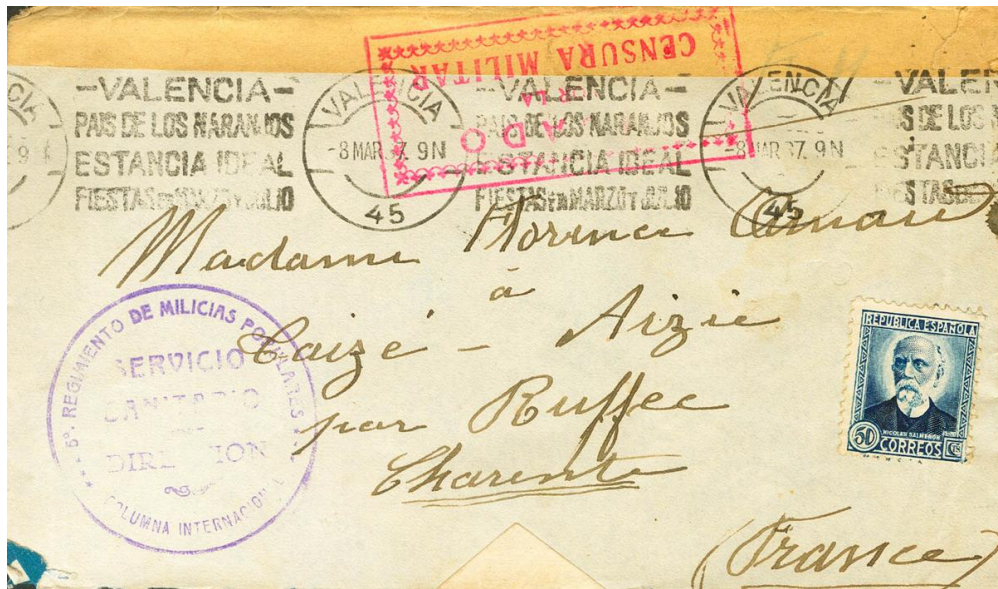 CENSURA MILITAR
-VALENCIA-
PAIS DE LOS NARANJOS
ESTANCIA IDEAL
FIESTAS EN MARZO Y JULIO
VALENCIA
-8 MAR 37. 9N
45
-VALENCIA-
PAIS DE LOS NARANJOS
ESTANCIA IDEAL
FIESTAS EN MARZO Y JULIO
VALENCIA
-8 MAR 37. 9N
45
Madame Florence
à
Caizé - Aizie
par Ruffec
Charente
(France)
5º. REGIMIENTO DE MILICIAS POPULARES
SERVICIO
SANITARIO
DIRECCION
COLUMNA INTERNACIONAL
REPUBLICA ESPAÑOLA
NICOLAS SALMERON
50 CORREOS CTS